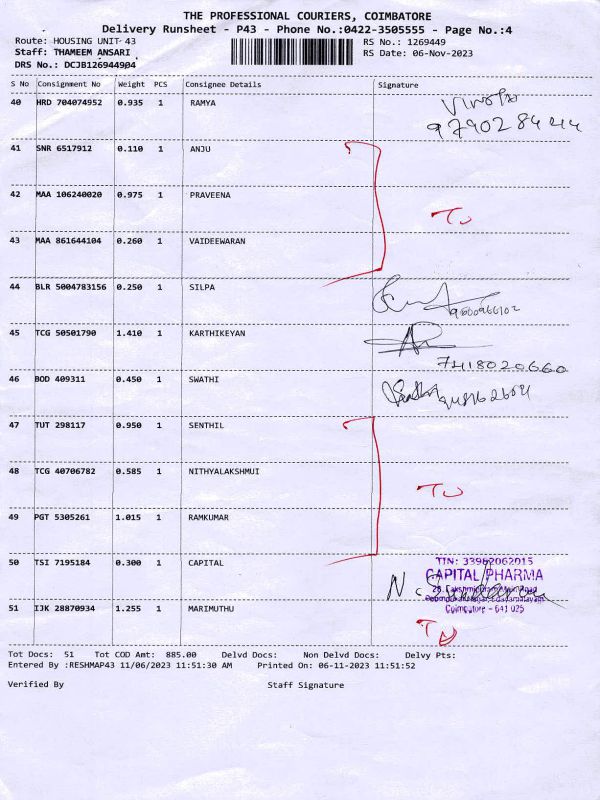 THE PROFESSIONAL COURIERS, COIMBATORE
Delivery Runsheet - P43 - Phone No.:0422-3505555 - Page No.:4
Route: HOUSING UNIT-43
RS No.: 1269449
Staff: THAMEEM ANSARI
RS Date: 06-Nov-2023
DRS No.: DCJB126944904
S No Consignment No Weight PCS Consignee Details Signature
40 HRD 704074952 0.935 1 RAMYA
9790284244
41 SNR 6517912 0.110 1 ANJU
42 MAA 106240020 0.975 1 PRAVEENA
TU
43 MAA 861644104 0.260 1 VAIDEEWARAN
44 BLR 5004783156 0.250 1 SILPA
45 TCG 50501790 1.410 1 KARTHIKEYAN
7418020660
46 BOD 409311 0.450 1 SWATHI
47 TUT 298117 0.950 1 SENTHIL
48 TCG 40706782 0.585 1 NITHYALAKSHMUI
TU
49 PGT 5305261 1.015 1 RAMKUMAR
50 TSI 7195184 0.300 1 CAPITAL
TIN: 33962062015
CAPITAL PHARMA
Coimbatore - 641 025
51 IJK 28870934 1.255 1 MARIMUTHU
TU
Tot Docs: 51 Tot COD Amt: 885.00 Delvd Docs: Non Delvd Docs: Delvy Pts:
Entered By :RESHMAP43 11/06/2023 11:51:30 AM Printed On: 06-11-2023 11:51:52
Verified By Staff Signature